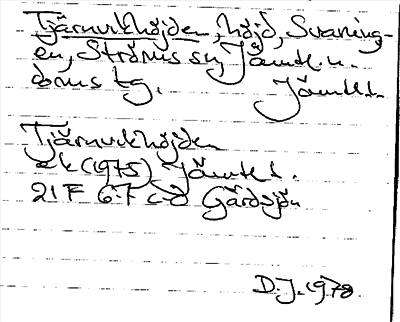 Tjärnvikhöjden, höjd, Svaning-
en, Ströms sn, Jämtl. n.
doms tg. Jämtl. l.
Tjärnvikhöjden
ek (1975) Jämtl l.
21F 6-7 c-d Gärdsjön
D.J. 1978